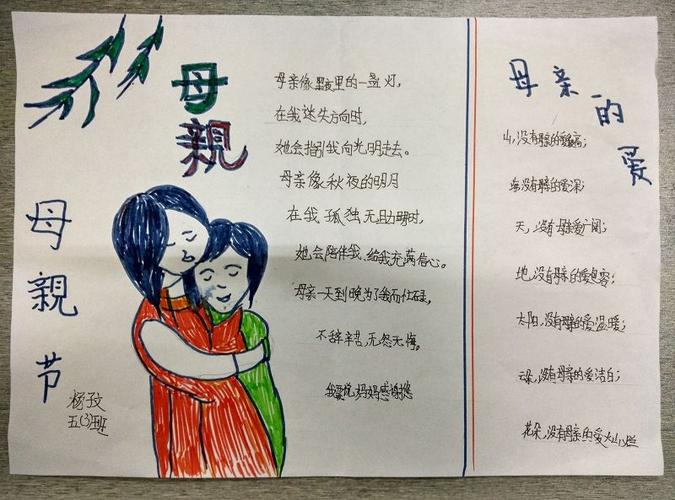 母親
母親节
杨玫
五(3)班
母亲像黑夜里的一盏灯,
在我迷失方向时,
她会指引我向光明走去。
母亲像秋夜的明月
在我孤独无助时,
她会陪伴我,给我充满信心。
母亲一天到晚为了我而忙碌,
不辞辛苦,无怨无悔。
我爱您妈妈感谢您
母亲的爱
山,没有母亲的爱高;
海没有母亲的爱深;
天,没有母亲爱广阔;
地,没有母亲的爱包容;
太阳,没有母亲的爱温暖;
云朵,没有母亲的爱洁白;
花朵,没有母亲的爱灿烂